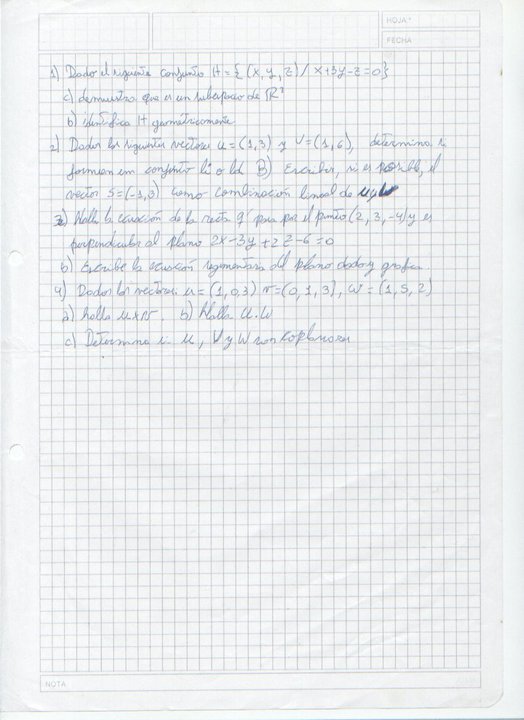 HOJA:
FECHA
1) Dado el siguiente conjunto H = { (x, y, z) / x+3y-z=0}
a) demuestra que es un subespacio de R³
b) identifica H geométricamente
2) Dados los siguientes vectores u = (1,3) y V = (1,6), determina si
forman un conjunto li o ld B) Escribir, si es posible, el
vector S=(-1,3) como combinación lineal de u y v
3) Halla la ecuación de la recta q' pasa por el punto (2, 3, -4) y es
perpendicular al plano 2x-3y+2z-6=0
b) Escribe la ecuación segmentaria del plano dado y grafica.
4) Dados los vectores: u = (1,0,3) v = (0,1,3), w = (1,5,2)
a) halla u x v. b) Halla u.w
c) Determina si u, V y W son coplanares
NOTA